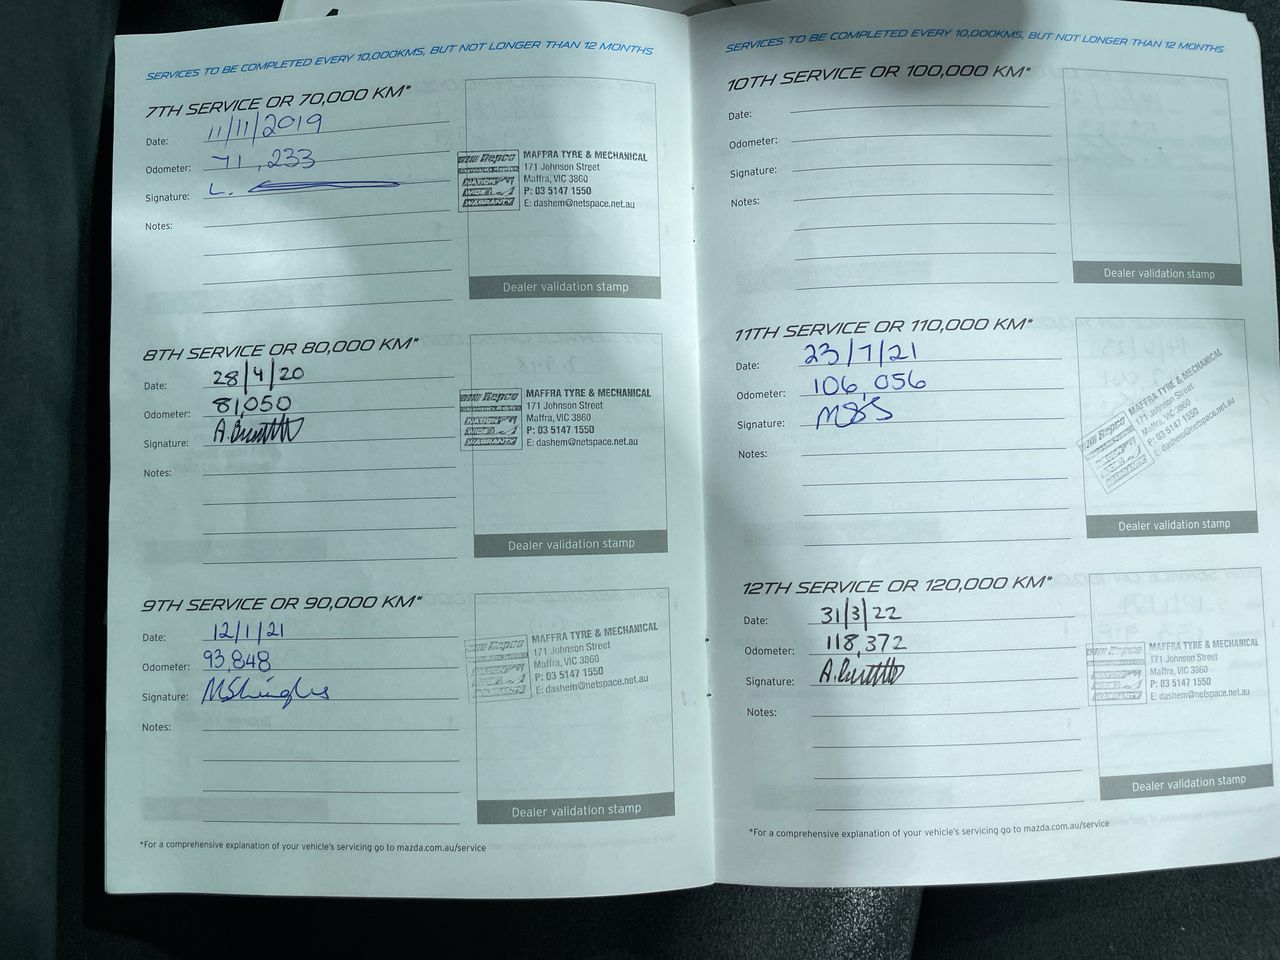 SERVICES TO BE COMPLETED EVERY 10,000KMS, BUT NOT LONGER THAN 12 MONTHS
7TH SERVICE OR 70,000 KM*
Date: 11/11/2019
Odometer: 71,233
Signature: L.
Notes:
Repco
NATION
WIDE
WARRANTY
MAFFRA TYRE & MECHANICAL
171 Johnson Street
Maffra, VIC 3860
P: 03 5147 1550
E: dashem@netspace.net.au
Dealer validation stamp
8TH SERVICE OR 80,000 KM*
Date: 28/4/20
Odometer: 81,050
Signature: A.
Notes:
Repco
NATION
WIDE
WARRANTY
MAFFRA TYRE & MECHANICAL
171 Johnson Street
Maffra, VIC 3860
P: 03 5147 1550
E: dashem@netspace.net.au
Dealer validation stamp
9TH SERVICE OR 90,000 KM*
Date: 12/1/21
Odometer: 93,848
Signature:
Notes:
Repco
MAFFRA TYRE & MECHANICAL
171 Johnson Street
Maffra, VIC 3860
P: 03 5147 1550
E: dashem@netspace.net.au
Dealer validation stamp
*For a comprehensive explanation of your vehicle's servicing go to mazda.com.au/service
SERVICES TO BE COMPLETED EVERY 10,000KMS, BUT NOT LONGER THAN 12 MONTHS
10TH SERVICE OR 100,000 KM*
Date:
Odometer:
Signature:
Notes:
Dealer validation stamp
11TH SERVICE OR 110,000 KM*
Date: 23/7/21
Odometer: 106,056
Signature:
Notes:
Repco
MAFFRA TYRE & MECHANICAL
171 Johnson Street
Maffra, VIC 3860
P: 03 5147 1550
E: dashem@netspace.net.au
Dealer validation stamp
12TH SERVICE OR 120,000 KM*
Date: 31/3/22
Odometer: 118,372
Signature: A.
Notes:
Repco
MAFFRA TYRE & MECHANICAL
171 Johnson Street
Maffra, VIC 3860
P: 03 5147 1550
E: dashem@netspace.net.au
Dealer validation stamp
*For a comprehensive explanation of your vehicle's servicing go to mazda.com.au/service